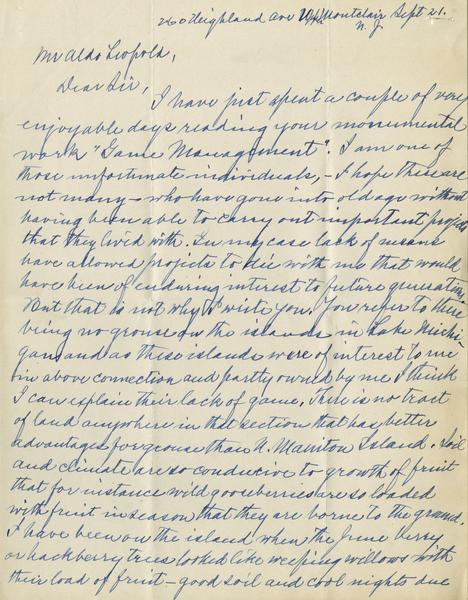 260 Highland Ave Montclair Sept 21.
N. J.
Mr Aldo Leopold,
Dear Sir,
I have just spent a couple of very
enjoyable days reading your monumental
work "Game Management". I am one of
those unfortunate individuals, - I hope there are
not many - who have gone into old age without
having been able to carry out important projects
that they lived with. In my case lack of means
have allowed projects to die with me that would
have been of enduring interest to future generations.
But that is not why I write you. You refer to there
being no grouse on the islands in Lake Michi-
gan and as these islands were of interest to me
in above connection and partly owned by me I think
I can explain their lack of game. There is no tract
of land anywhere in that section that has better
advantages for grouse than N. Manitou Island. Soil
and climate are so conducive to growth of fruit
that for instance wild gooseberries are so loaded
with fruit in season that they are borne to the ground.
I have been on the island when the June berry
or hackberry trees looked like weeping willows with
their load of fruit - good soil and cool nights due